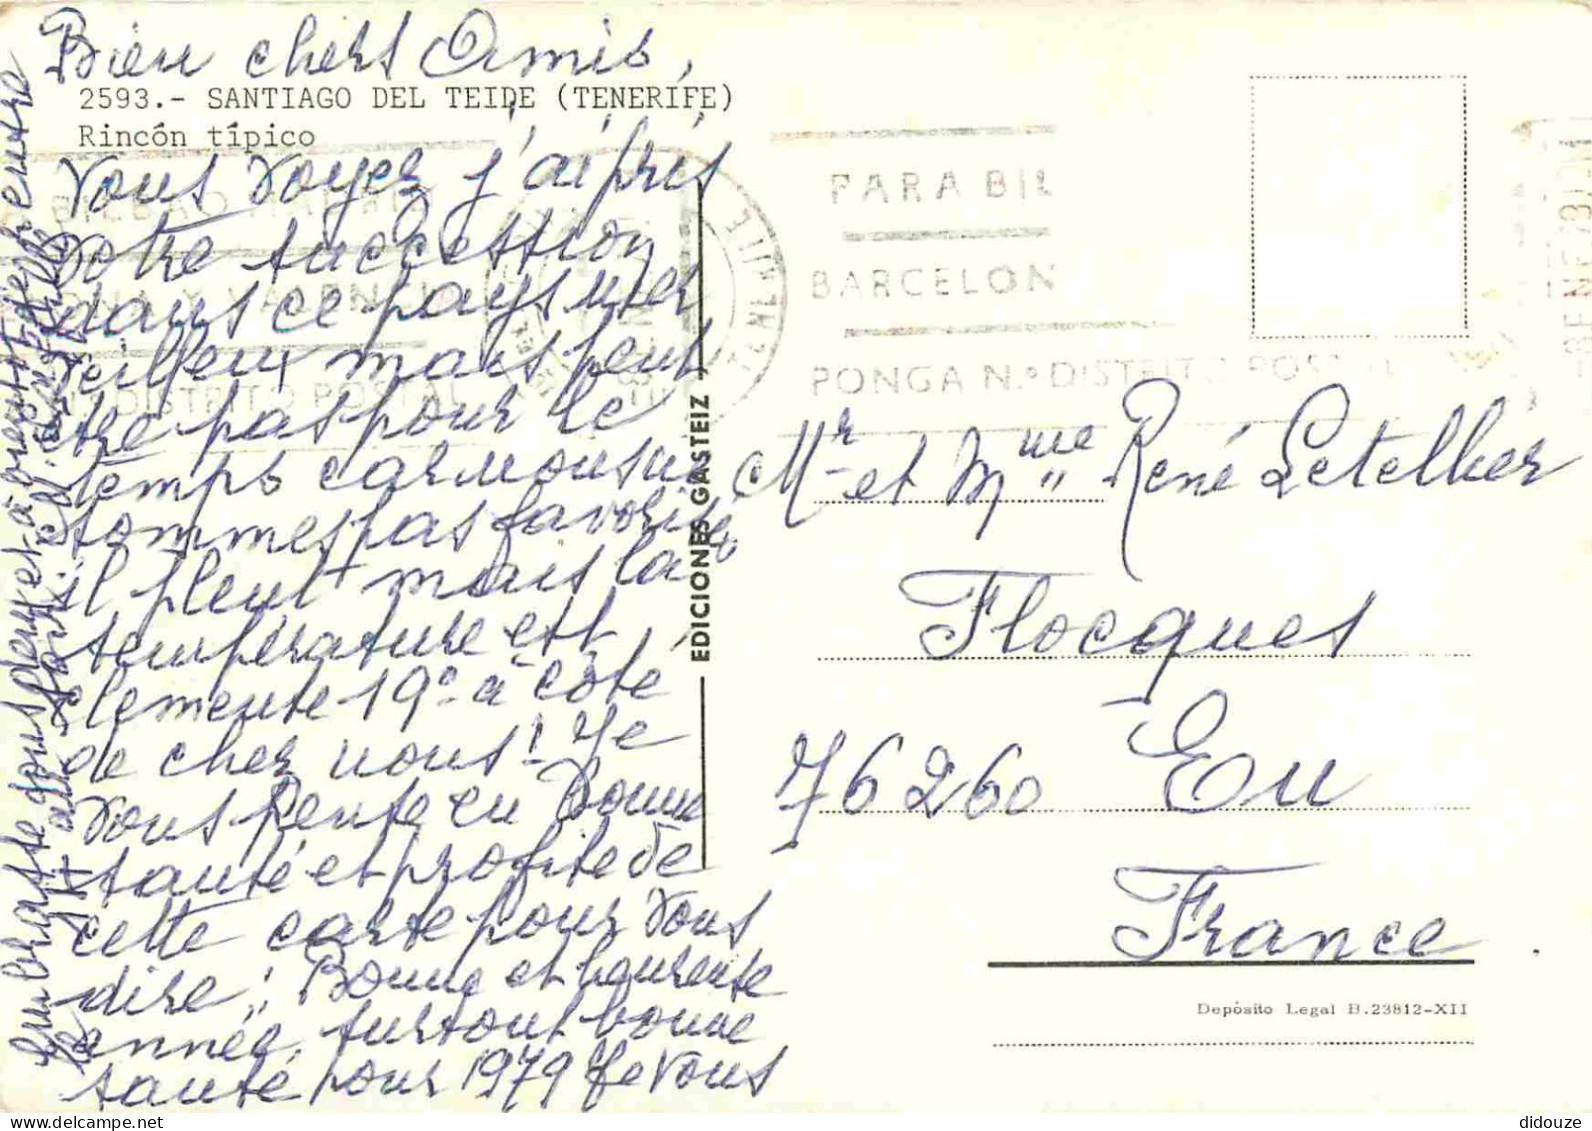 Bien chers Amis,
2593.- SANTIAGO DEL TEIDE (TENERIFE)
Rincón típico
Vous voyez j'ai pris
votre succession
dans ce pays mer
veilleux mais peut
être pas pour le
temps car nous ne
sommes pas favorisés
il pleut mais la
température est
clémente 19° à côté
de chez nous! Je
vous pense en bonne
santé et profite de
cette carte pour vous
dire: Bonne et heureuse
année, surtout bonne
santé pour 1979 Je vous
embrasse
EDICIONES GASTEIZ
BILBAO MADRID
ONA Y VALENCI
DISTRITO POSTAL
PARA BIL
BARCELON
PONGA N.º DISTRITO POSTAL
Mr et Mme René Letellier
Flocques
76260 Eu
France
Depósito Legal B.23812-XII
didouze